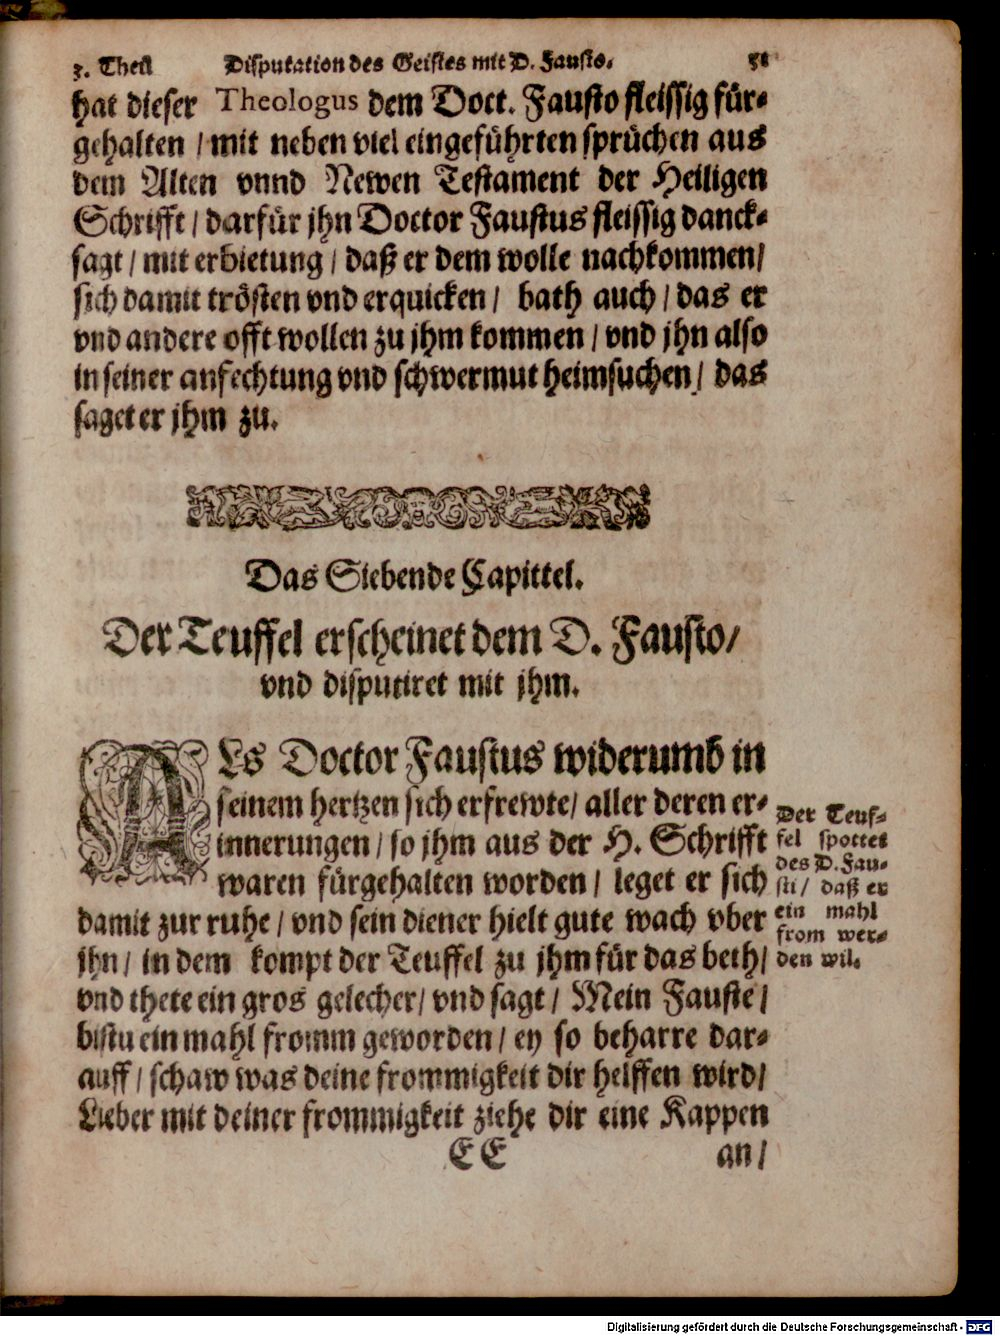 3. Theil Disputation des Geistes mit D. Fausto. 51
hat dieser Theologus dem Doct. Fausto fleissig für-
gehalten / mit neben viel eingeführten sprüchen aus
dem Alten vnnd Newen Testament der Heiligen
Schrifft / darfür jhn Doctor Faustus fleissig danck-
sagt / mit erbietung / daß er dem wolle nachkommen /
sich damit trösten vnd erquicken / bath auch / das er
vnd andere offt wollen zu jhm kommen / vnd jhn also
in seiner anfechtung vnd schwermut heimsuchen / das
saget er jhm zu.
Das Siebende Capittel.
Der Teuffel erscheinet dem D. Fausto /
vnd disputiret mit jhm.
ALs Doctor Faustus widerumb in
seinem hertzen sich erfrewte / aller deren er-
innerungen / so jhm aus der H. Schrifft
waren fürgehalten worden / leget er sich
damit zur ruhe / vnd sein diener hielt gute wach vber
jhn / in dem kompt der Teuffel zu jhm für das beth /
vnd thete ein gros gelecher / vnd sagt / Mein Fauste /
bistu ein mahl fromm geworden / ey so beharre dar-
auff / schaw was deine frommigkeit dir helffen wird /
Lieber mit deiner frommigkeit ziehe dir eine Kappen
EE an /
Der Teuf-
fel spottet
des D. Fau-
sti / daß er
ein mahl
from wer-
den wil.
Digitalisierung gefördert durch die Deutsche Forschungsgemeinschaft - DFG